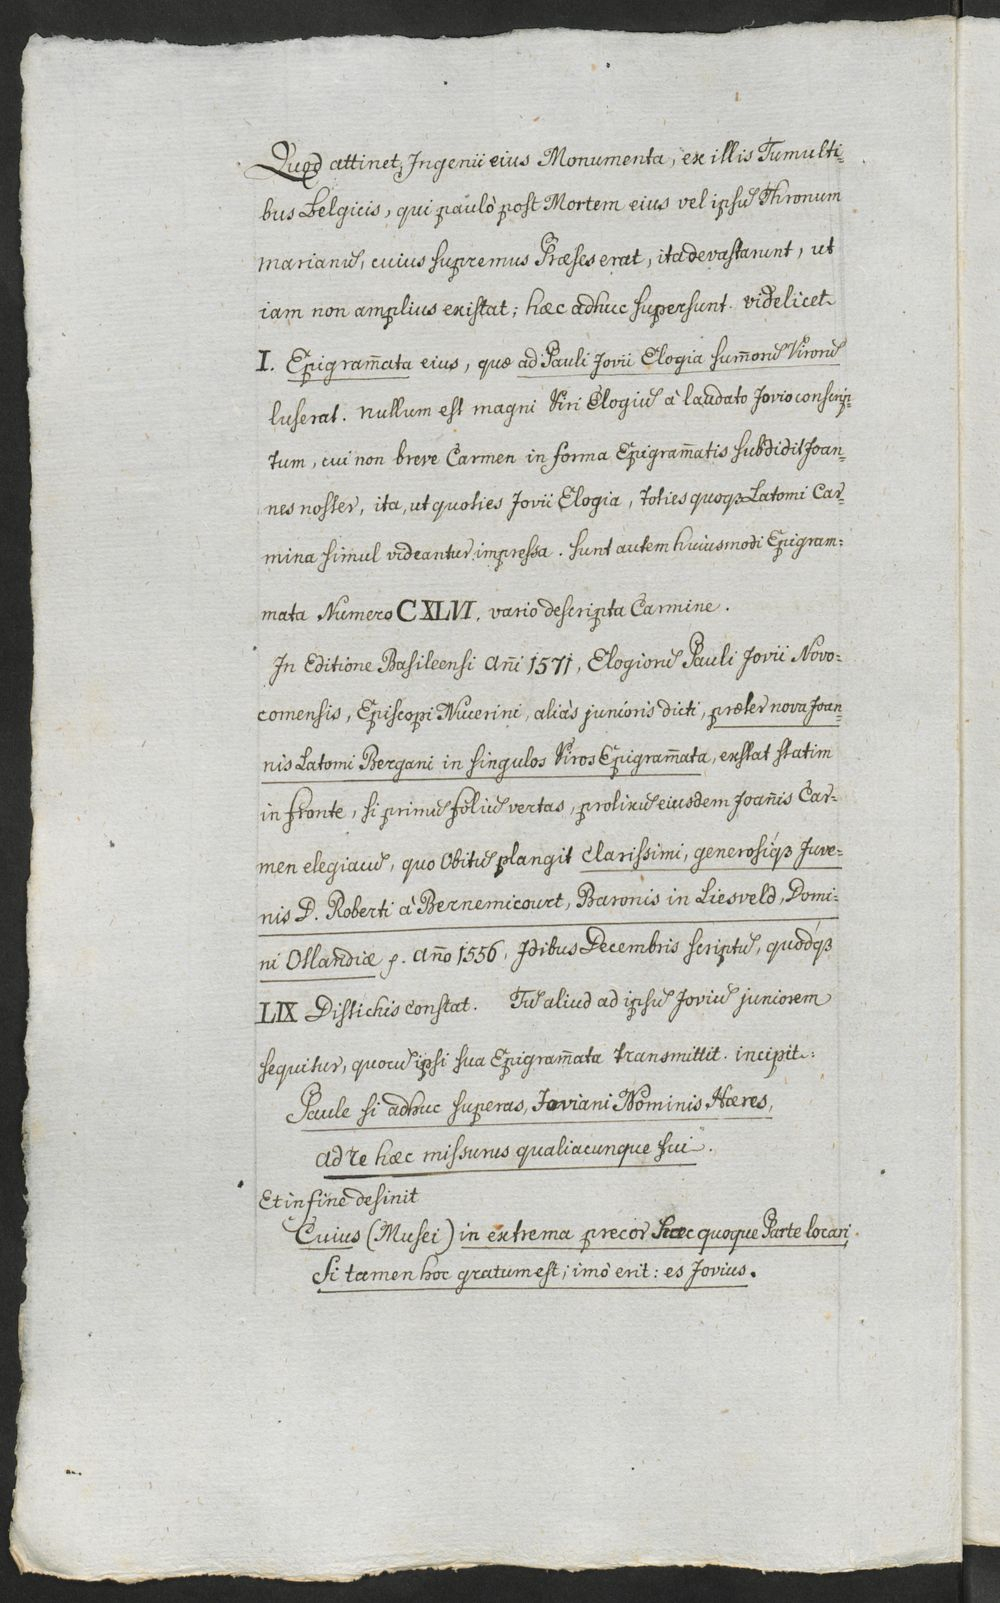 Quod attinet Ingenii eius Monumenta, ex illis Tumulti=
bus Belgicis, qui paulò post Mortem eius vel ipsū Thronum
marianū, cuius supremus Præses erat, ita devastarunt, ut
iam non amplius existat; hæc adhuc supersunt. videlicet.
I. Epigram̄ata eius, quæ ad Pauli Jovii Elogia sum̄orū Virorū
luserat. nullum est magni Viri Elogiū à laudato Jovio conscrip=
tum, cui non breve Carmen in forma Epigram̄atis subdidit Joan=
nes noster, ita, ut quoties Jovii Elogia, toties quoqꝫ Latomi Car=
mina simul videantur impressa. sunt autem huiusmodi Epigram=
mata Numero CXLVI, vario descripta Carmine.
In Editione Basileensi Añi 1571, Elogiorū Pauli Jovii Novo=
comensis, Episcopi Nucerini, aliàs junioris dicti, præter nova Joan=
nis Latomi Bergani in singulos Viros Epigram̄ata, exstat statim
in fronte, si primū foliū vertas, prolixū eiusdem Joañis Car=
men elegiacū, quo Obitū plangit clarissimi, generosiqꝫ Juve=
nis D. Roberti à Bernemicourt, Baronis in Liesveld, Domi=
ni Ollandiæ p. Año 1556, Idibus Decembris scriptū, quodqꝫ
LIX Distichis constat. Tū aliud ad ipsū Joviū juniorem
sequitur, quocū ipsi sua Epigram̄ata transmittit. incipit.:
Paule si adhuc superas, Joviani Nominis Hæres,
ad te hæc missurus qualiacunque fui.
Et in fine desinit
Cuius (Musei) in extrema precor hæc quoque Parte locari,
Si tamen hoc gratum est; imò erit: es Jovius.